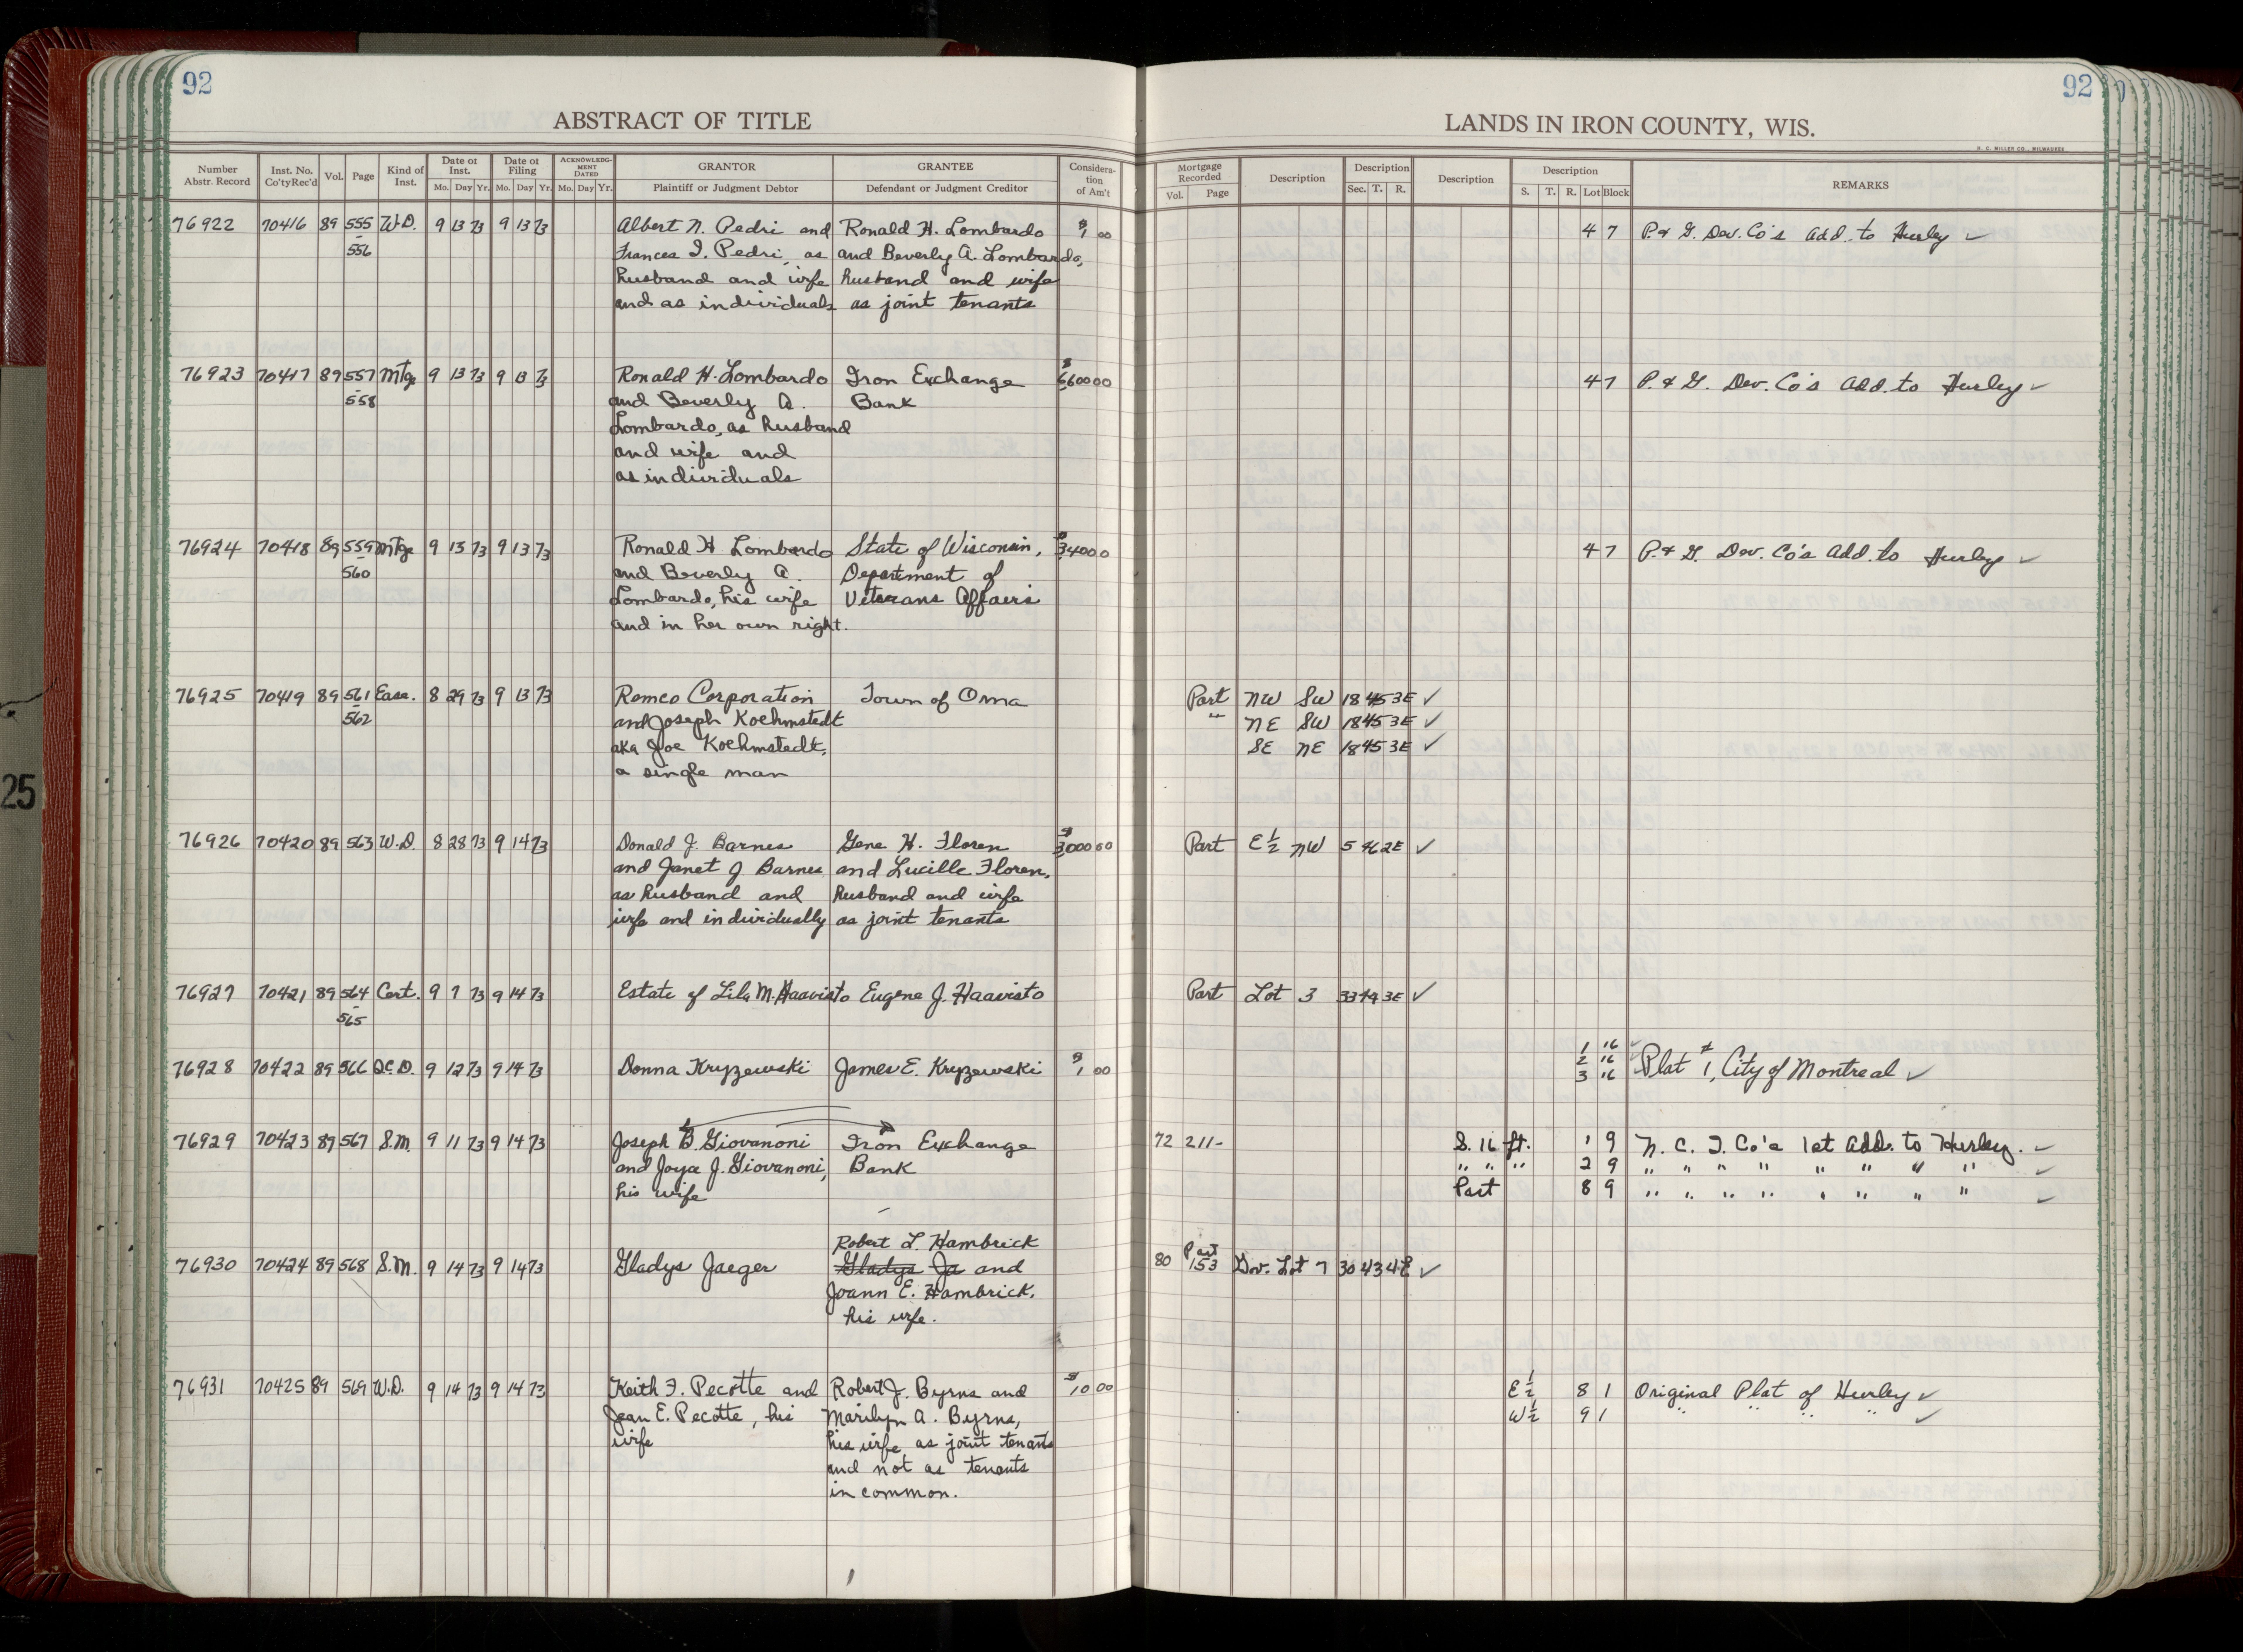 92
92
ABSTRACT OF TITLE
LANDS IN IRON COUNTY, WIS.
H. C. MILLER CO., MILWAUKEE
Number Abstr. Record
Inst. No. Co'ty Rec'd
Vol.
Page
Kind of Inst.
Date of Inst.
Mo. Day Yr.
Date of Filing
Mo. Day Yr.
ACKNOWLEDGMENT DATED
Mo. Day Yr.
GRANTOR
Plaintiff or Judgment Debtor
GRANTEE
Defendant or Judgment Creditor
Consideration of Am't
Mortgage Recorded
Vol. Page
Description
Description
Sec. T. R.
Description
Description
S. T. R. Lot Block
REMARKS
76922 70416 89 555 W.D. 9 13 73 9 13 73 Albert N. Pedri and Ronald H. Lombardo $1 00 4 7 P. & G. Dev. Co's Add. to Hurley ✓
556 Frances I. Pedri, as and Beverly A. Lombardo,
husband and wife husband and wife
and as individuals as joint tenants
76923 70417 89 557 Mtge 9 13 73 9 13 73 Ronald H. Lombardo Iron Exchange $6600 00 4 7 P. & G. Dev. Co's Add. to Hurley ✓
558 and Beverly A. Bank
Lombardo, as husband
and wife and
as individuals
76924 70418 89 559 Mtge 9 13 73 9 13 73 Ronald H Lombardo State of Wisconsin, $3400 0 4 7 P. & G. Dev. Co's Add. to Hurley ✓
560 and Beverly A. Department of
Lombardo, his wife Veterans Affairs
and in her own right.
76925 70419 89 561 Ease. 8 29 73 9 13 73 Romco Corporation Town of Oma Part NW SW 18 45 3E ✓
562 and Joseph Koehmstedt " NE SW 18 45 3E ✓
aka Joe Koehmstedt, SE NE 18 45 3E ✓
a single man
76926 70420 89 563 W.D. 8 28 73 9 14 73 Donald J. Barnes Gene H. Floren $3000 00 Part E½ NW 5 46 2E ✓
and Janet J Barnes and Lucille Floren,
as husband and husband and wife
wife and individually as joint tenants
76927 70421 89 564 Cert. 9 7 73 9 14 73 Estate of Lila M. Haavisto Eugene J. Haavisto Part Lot 3 33 44 3E ✓
565
1 16 ✓
76928 70422 89 566 Q.C.D. 9 12 73 9 14 73 Donna Kryzewski James E. Kryzewski $1 00 2 16 Plat #1, City of Montreal ✓
3 16
76929 70423 89 567 S.M. 9 11 73 9 14 73 Joseph B. Giovanoni Iron Exchange 72 211- S. 16 ft. 1 9 N. C. I. Co's 1st Add. to Hurley. ✓
and Joyce J. Giovanoni, Bank " " " 2 9 " " " " " " " " ✓
his wife Part 8 9 " " " " " " " " ✓
Robert L. Hambrick
76930 70424 89 568 S.M. 9 14 73 9 14 73 Gladys Jaeger Gladys Ja and 80 Part 153 Gov. Lot 7 30 43 4E ✓
Joann E. Hambrick,
his wife.
76931 70425 89 569 W.D. 9 14 73 9 14 73 Keith F. Pecotte and Robert J. Byrns and $10 00 E½ 8 1 Original Plat of Hurley ✓
Jean E. Pecotte, his Marilyn A. Byrns, W½ 9 1 " " " " ✓
wife his wife, as joint tenants
and not as tenants
in common.
25